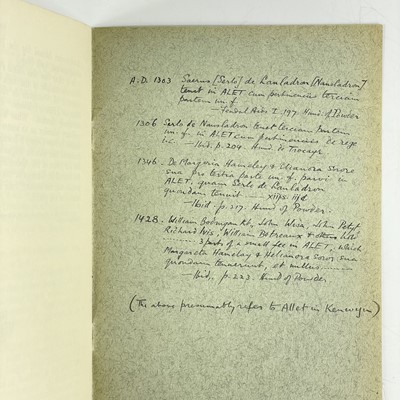 A.D. 1303 Saerus [Serlo] de Lanladron [Nansladron]
tenet in ALET cum pertinenciis terciam
partem un. f.
— Feudal Aids I. 197. Hund. of Powder
1306 Serlo de Nansladron tenet terciam partem
un. f. in ALET cum pertinenciis de rege
— Ibid. p. 204. Hund. de
1346. De Margeria Hameley & Elianora sorore
sua pro tertia parte un. f. parvi in
ALET, quam Serlo de Lanladron
quondam tenuit. xiijs. iiijd.
— Ibid p. 217. Hund of Powder.
1428. William Bodrugan Kt, John Weia, John Petyt,
Richard William Botreaux &
3 parts of a small fee in ALET, which
Margareta Hamelay & Helianora soror sua
quondam tenuerunt, et nullus
— Ibid, p. 223. Hund of Powder
(The above presumably refers to Allet in Kenwyn)